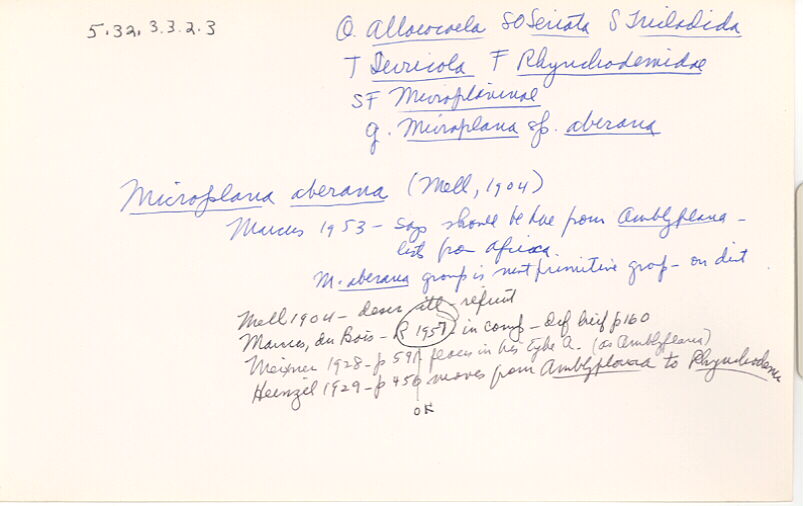 5.32.3.3.2.3
O. Alloeocoela SO Seriata S Tricladida
T Terricola F Rhynchodemidae
SF Microplaninae
g. Microplana sp. aberana
Microplana aberana (Mell, 1904)
Marcus 1953 - says should be due from Amblyplana -
lists from Africa.
M. aberana group is most primitive group - on dist
Mell 1904 - descr
Marcus, du Bois - R 1957 in comp - def brief p 160
Meixner 1928 - p 591 places in his type A. (as Amblyplana)
Heinzel 1929 - p 456 moves from Amblyplana to Rhynchodemus
OK